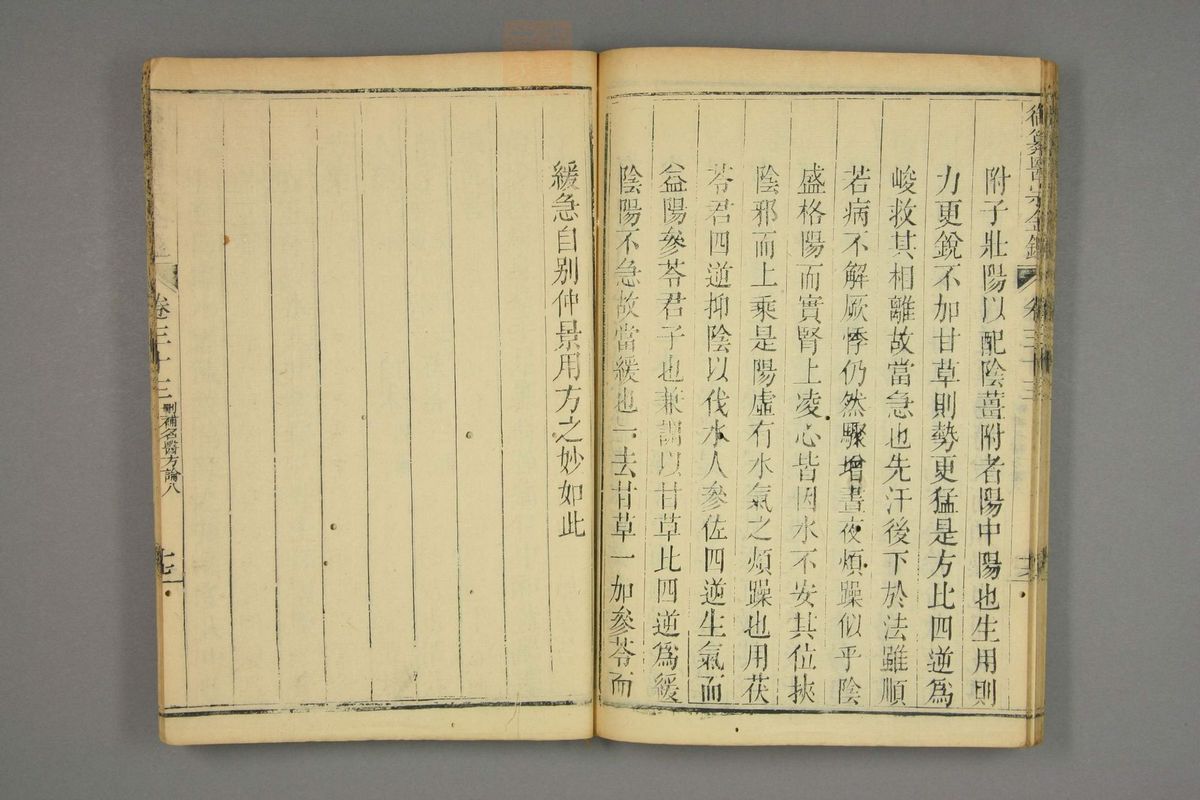 御纂醫宗金鑑 卷三十三
附子壯陽以配陰薑附者陽中陽也生用則
力更銳不加甘草則勢更猛是方比四逆爲
峻救其相離故當急也先汗後下於法雖順
若病不解厥悸仍然驟增晝夜煩躁似乎陰
盛格陽而實腎上凌心皆因水不安其位挾
陰邪而上乘是陽虛有水氣之煩躁也用茯
苓君四逆抑陰以伐水人參佐四逆生氣而
益陽參苓君子也兼調以甘草比四逆爲緩
陰陽不急故當緩也一去甘草一加參苓而
緩急自別仲景用方之妙如此
卷三十三 刪補名醫方論八